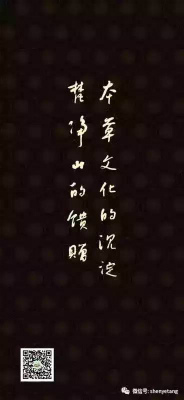 本草文化的沉淀
梵净山的馈赠
微信号: shenyetang